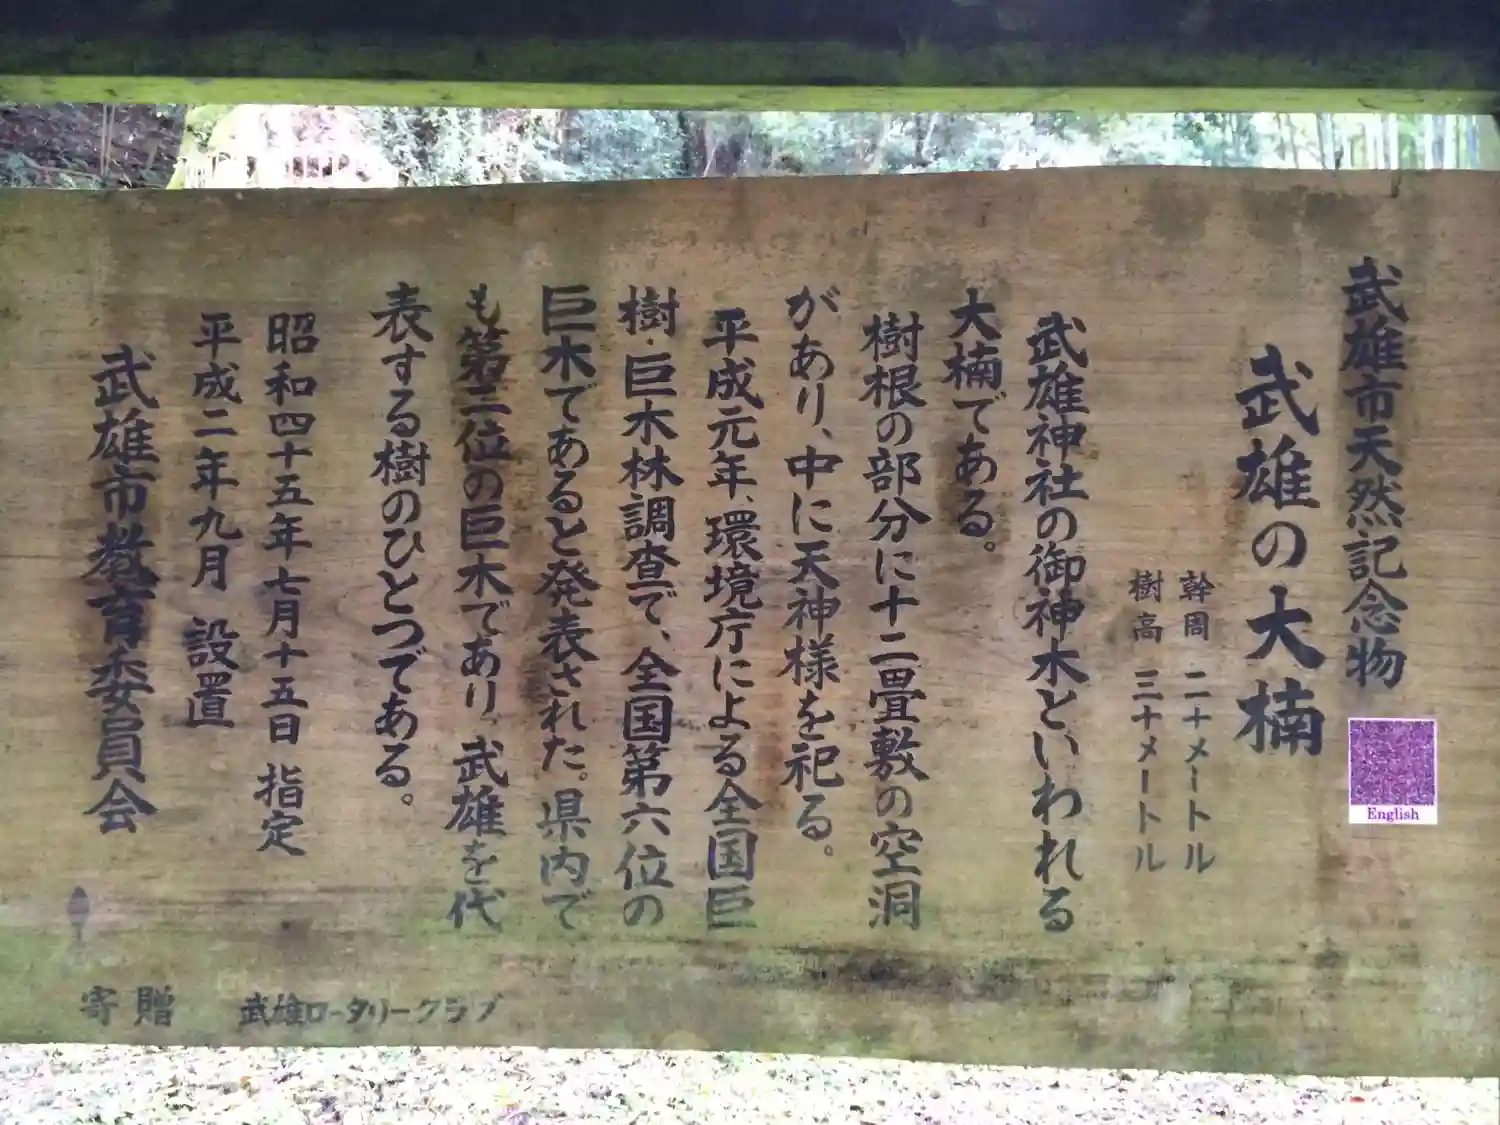 武雄市天然記念物
English
武雄の大楠
幹周 二十メートル
樹高 三十メートル
武雄神社の御神木といわれる
大楠である。
樹根の部分に十二畳敷の空洞
があり、中に天神様を祀る。
平成元年、環境庁による全国巨
樹・巨木林調査で、全国第六位の
巨木であると発表された。県内で
も第二位の巨木であり、武雄を代
表する樹のひとつである。
昭和四十五年七月十五日 指定
平成二年九月 設置
武雄市教育委員会
寄贈 武雄ロータリークラブ